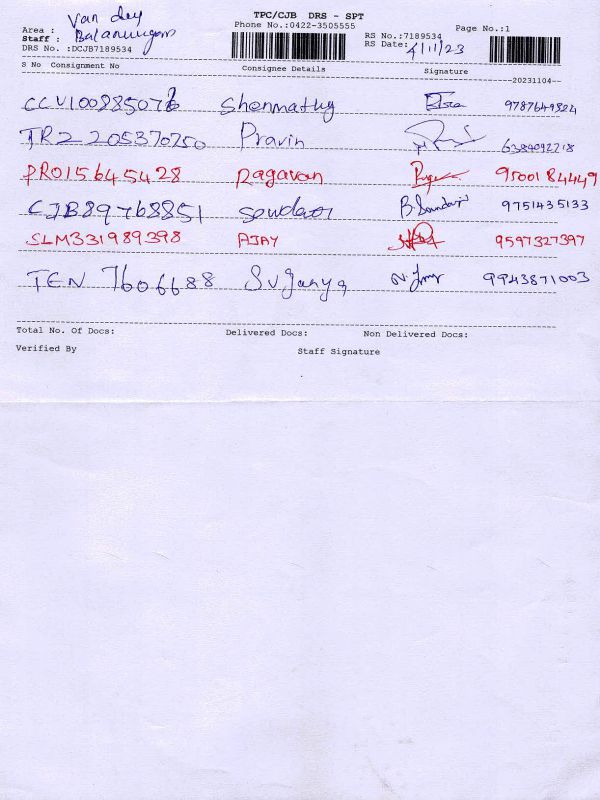 TPC/CJB DRS - SPT
Phone No.:0422-3505555
Area : Van dey
Staff : Balamurugan
DRS No. :DCJB7189534
RS No.:7189534
RS Date: 4/11/23
Page No.:1
S No Consignment No Consignee Details Signature
20231104
CCV10088507 Shenmathy 9787649824
TR2205370750 Pravin 6384092218
PRO15645428 Ragavan 9500184449
CJB89768851 B.Soundar 9751435133
SLM331989398 AJAY 9597327397
TEN 7606688 Suganya 9943871003
Total No. Of Docs: Delivered Docs: Non Delivered Docs:
Verified By Staff Signature